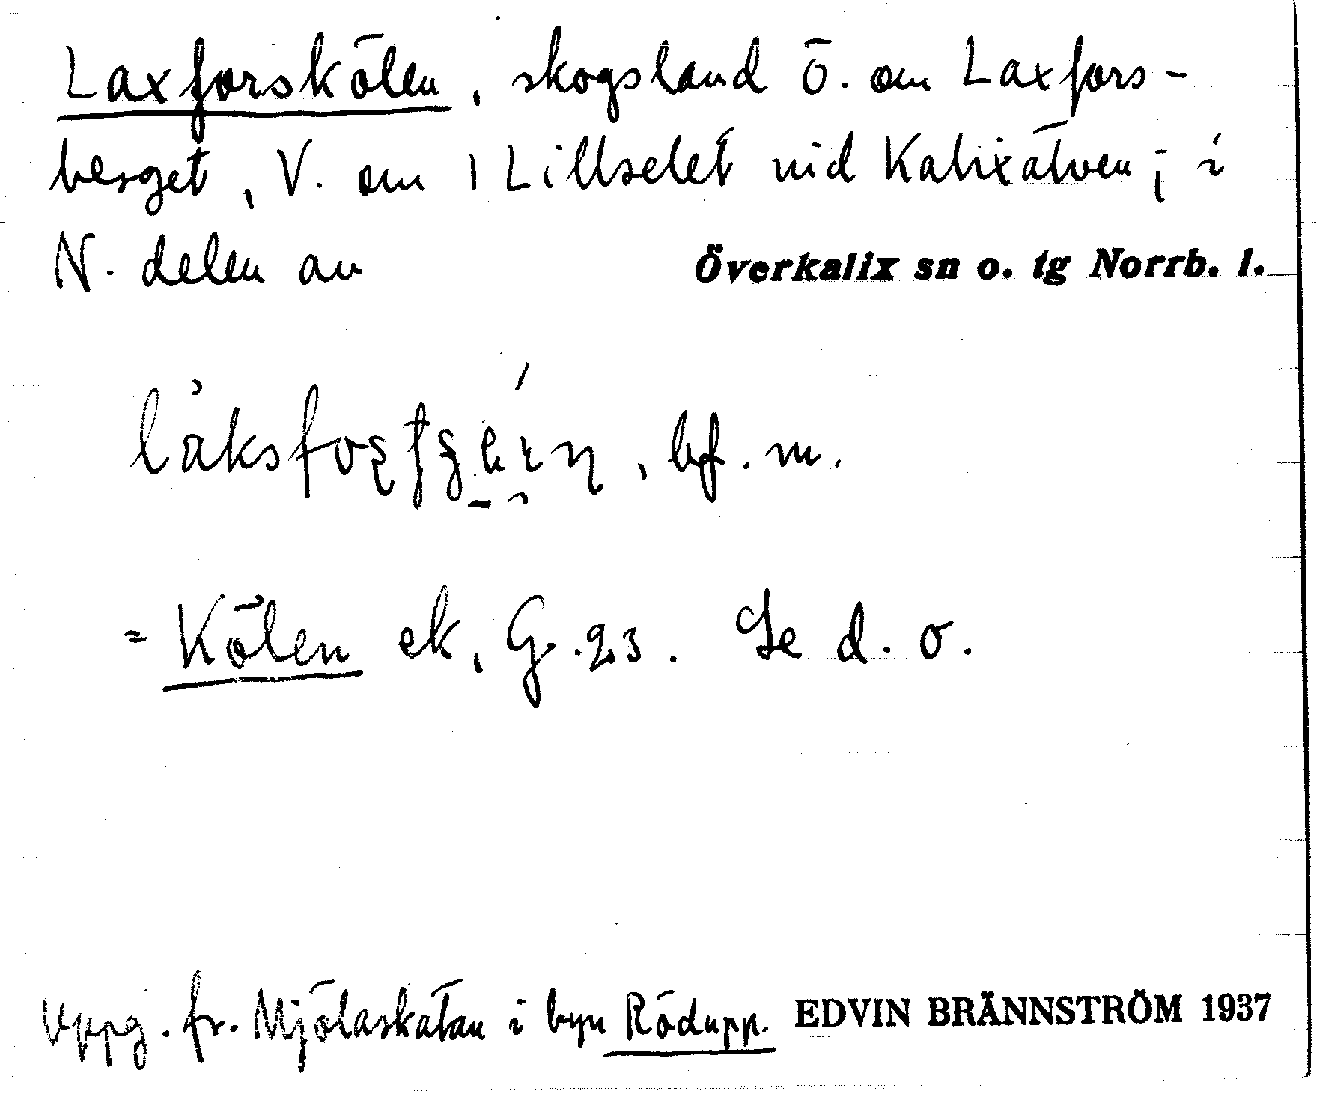 Laxforskölen, skogsland Ö. om Laxfors-
berget, V. om Lillselet vid Kalixälven; i
N. delen av Överkalix sn o. tg Norrb. l.
bf. m.
= Kölen ek, G. 23. Se d. o.
Uppg. fr. Mjölaskatan i byn Rödupp. EDVIN BRÄNNSTRÖM 1937